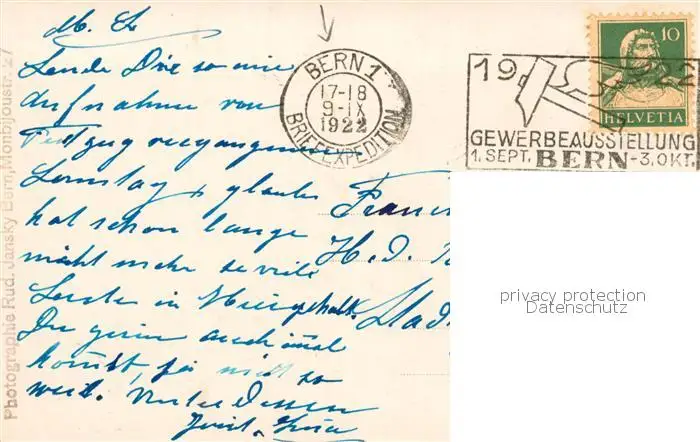 M. L.
Sende Dir so eine
Aufnahme von
Festzug vergangenen
Sonntag & glaube
hat schon lange
nicht mehr so viele
Leute in Bern gehabt.
Du gerne auch mal
kommst, ja nicht so
weit. Unterdessen
Franz
H. d.
Stad
BERN 1
17-18
9-IX
1922
BRIEFEXPEDITION
19 22
GEWERBEAUSSTELLUNG
1. SEPT. BERN - 3. OKT.
10
HELVETIA
Photographie Rud. Jansky Bern, Monbijoustr. 27
privacy protection
Datenschutz